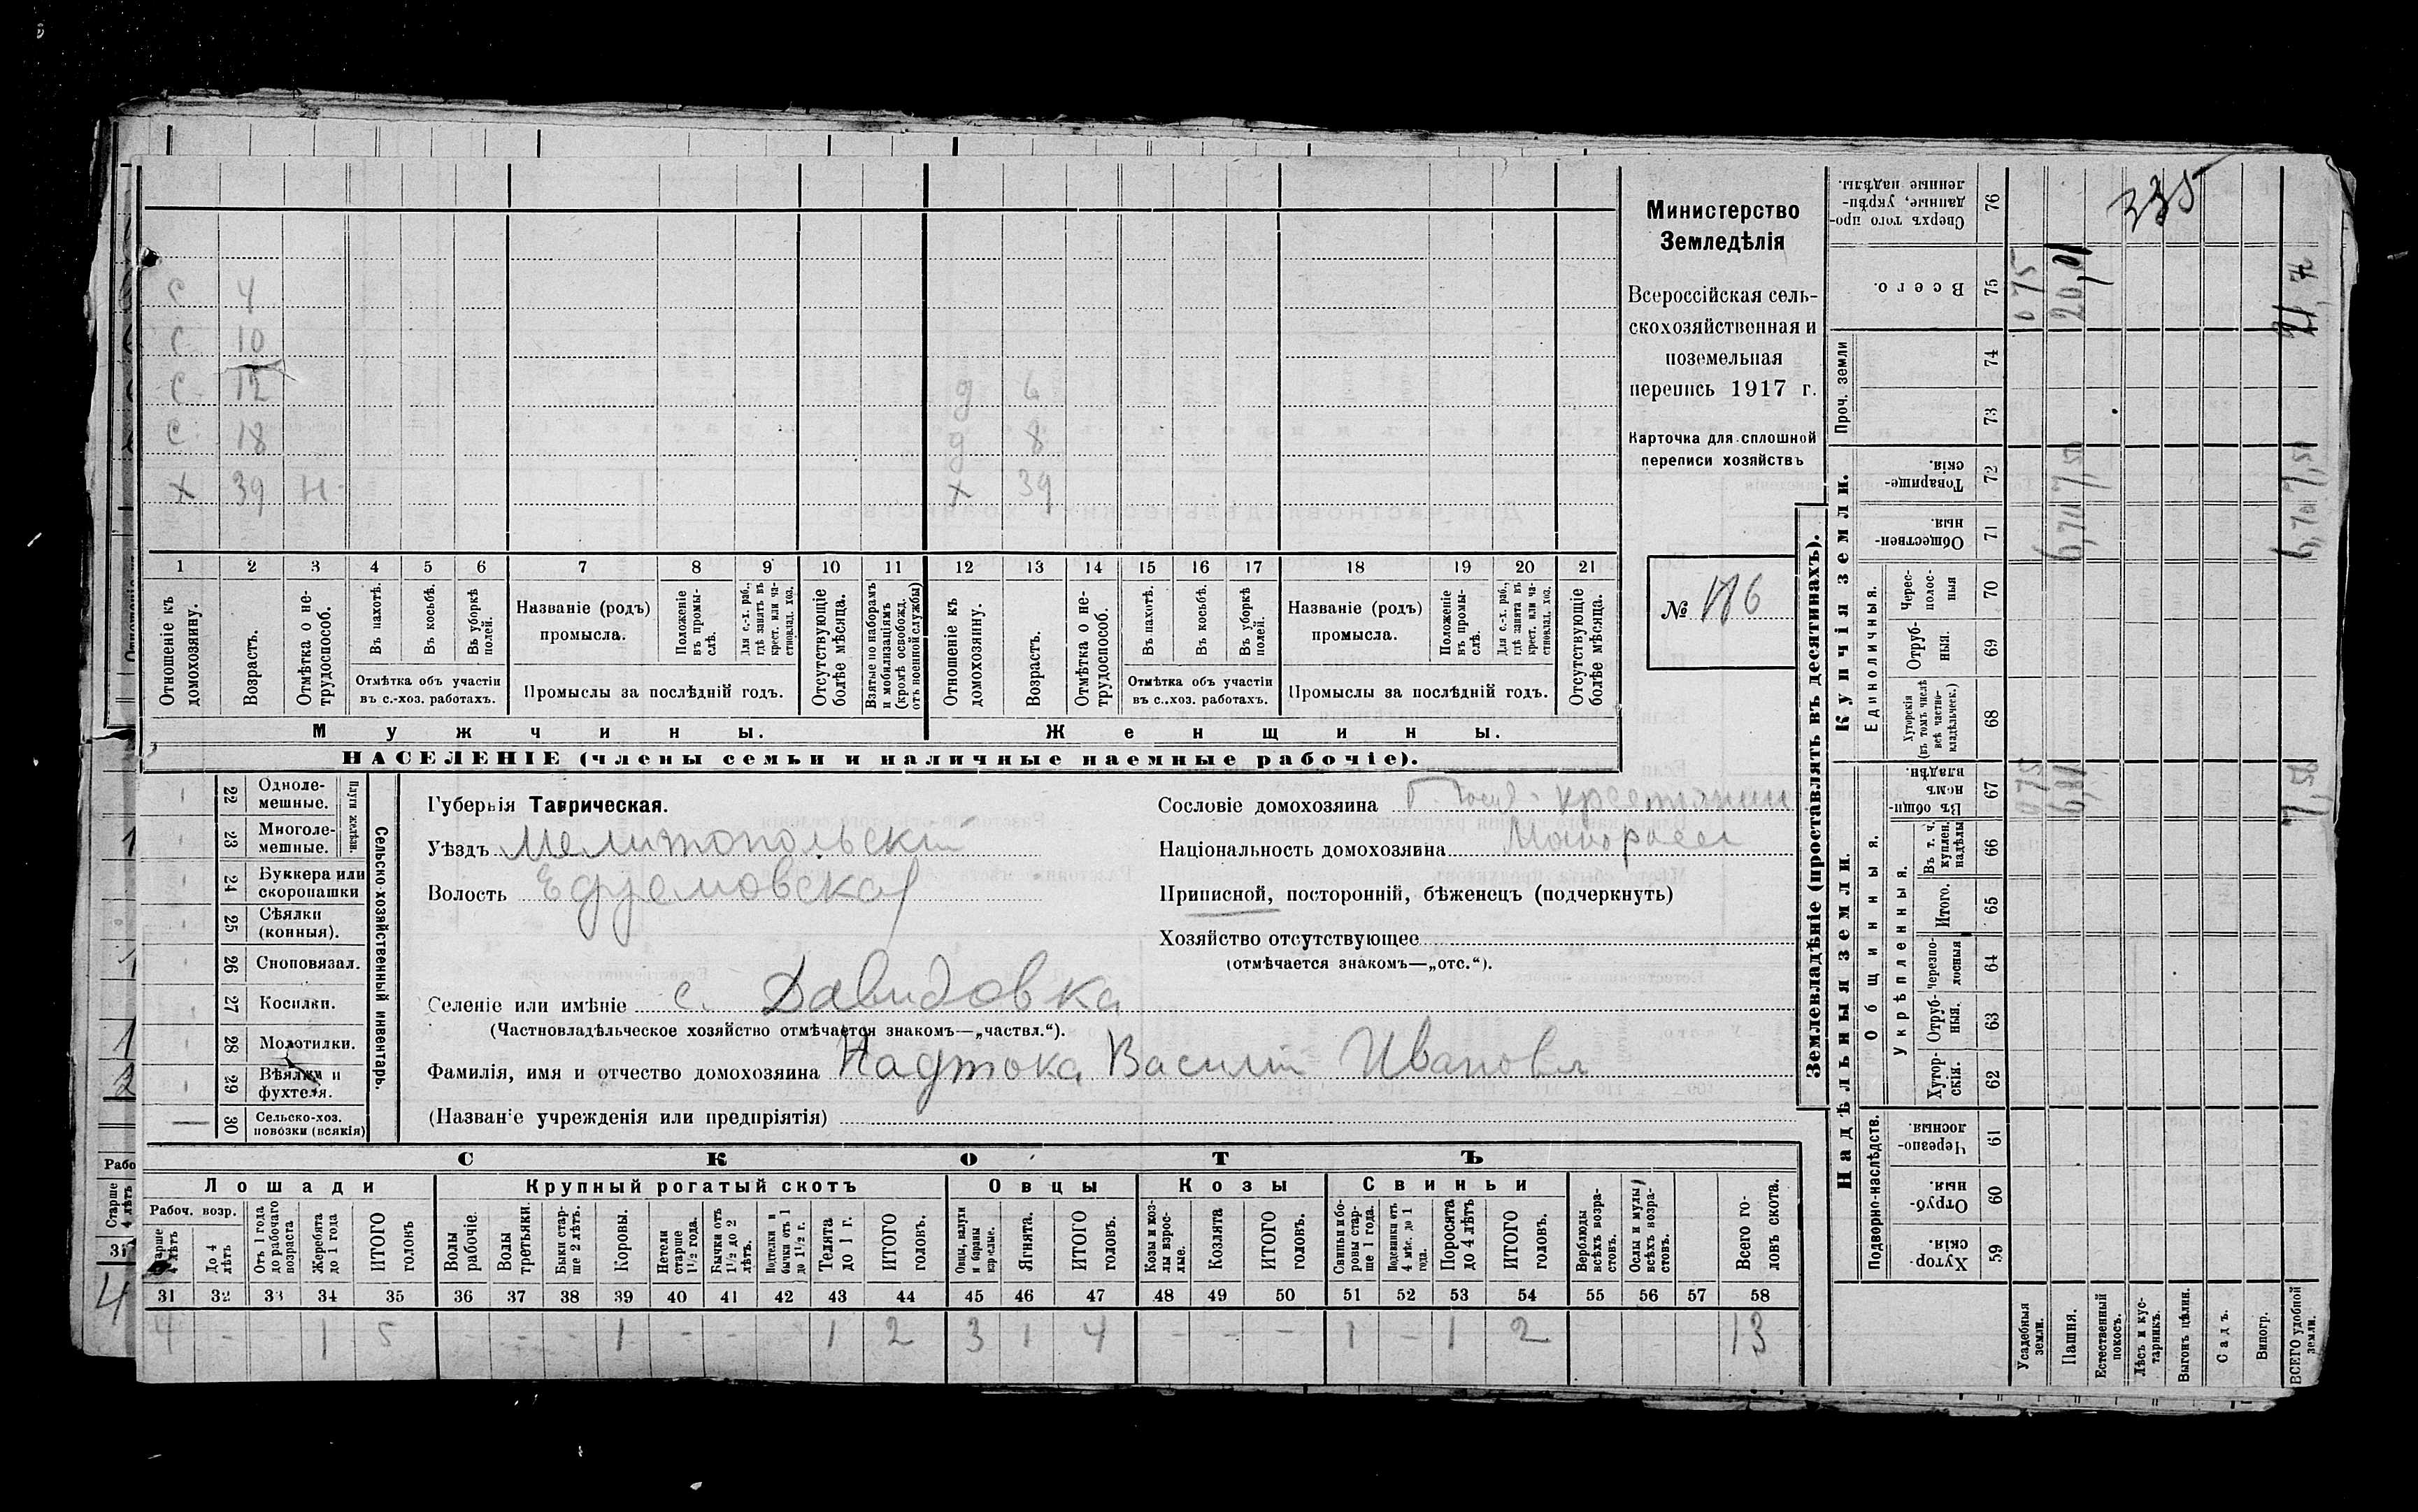 335
Министерство
Земледѣлія
Всероссійская сель-
скохозяйственная и
поземельная
перепись 1917 г.
Карточка для сплошной
переписи хозяйствъ
№
с 4
с 10
с 12
с 18
х 39 н
д 6
д 8
х 39
1 2 3 4 5 6 7 8 9 10 11 12 13 14 15 16 17 18 19 20 21
Отношеніе къ домохозяину.
Возрастъ.
Отмѣтка о не-трудоспособ.
Въ пахотѣ.
Въ косьбѣ.
Въ уборкѣ полей.
Отмѣтка объ участіи
въ с.-хоз. работахъ.
Названіе (родъ)
промысла.
Положеніе въ промы-слѣ.
Для с.-х. раб., гдѣ занятъ въ крест. или ча-стновлад. хоз.
Промыслы за послѣдній годъ.
Отсутствующіе болѣе мѣсяца.
Взятые по наборамъ и мобилизаціямъ (кромѣ освобожд. отъ военной службы)
Отношеніе къ домохозяину.
Возрастъ.
Отмѣтка о не-трудоспособ.
Въ пахотѣ.
Въ косьбѣ.
Въ уборкѣ полей.
Отмѣтка объ участіи
въ с..хоз. работахъ.
Названіе (родъ)
промысла.
Положеніе въ промы-слѣ.
Для с.-х. раб., гдѣ занята въ крест. или ча-стновлад. хоз.
Промыслы за послѣдній годъ.
Отсутствующіе болѣе мѣсяца.
Мужчины.
Женщины.
НАСЕЛЕНІЕ (члены семьи и наличные наемные рабочіе).
Сельско-хозяйственный инвентарь.
Плуги желѣзн.
22 Одноле-мешные.
23 Многоле-мешные.
24 Буккера или скоропашки
25 Сѣялки (конныя).
26 Сноповязал.
27 Косилки.
28 Молотилки.
29 Вѣялки и фухтеля.
30 Сельско-хоз. повозки (всякія)
Губернія Таврическая.
Уѣздъ Мелитопольскій
Волость
Сословіе домохозяина
Національность домохозяина
Приписной, посторонній, бѣженецъ (подчеркнуть)
Хозяйство отсутствующее
(отмѣчается знакомъ—„отс.“).
Селеніе или имѣніе с. Давидовка
(Частновладѣльческое хозяйство отмѣчается знакомъ—„частвл.“).
Фамилія, имя и отчество домохозяина Надтока Василій Ивановъ
(Названіе учрежденія или предпріятія)
СКОТЪ
Лошади
Крупный рогатый скотъ
Овцы
Козы
Свиньи
Рабоч. возр.
Старше 4 лѣтъ
До 4 лѣтъ
Отъ 1 года до рабочаго возраста
Жеребята до 1 года
ИТОГО головъ
Волы рабочіе.
Волы третьяки.
Быки стар-ше 2 лѣтъ.
Коровы.
Нетели старше 1½ года.
Бычки отъ 1½ до 2 лѣтъ.
Подтелки и бычки отъ 1 до 1½ г.
Телята до 1 г.
ИТОГО головъ.
Овцы, валухи и бараны взрослые.
Ягнята.
ИТОГО головъ.
Козы и коз-лы взрос-лые.
Козлята
ИТОГО головъ.
Свиньи и бо-ровы стар-ше 1 года.
Подсвинки отъ 4 мѣс. до 1 года.
Поросята до 4 лѣтъ
ИТОГО головъ.
Верблюды всѣхъ возра-стовъ.
Ослы и мулы всѣхъ возра-стовъ.
Всего го-ловъ скота.
31 32 33 34 35 36 37 38 39 40 41 42 43 44 45 46 47 48 49 50 51 52 53 54 55 56 57 58
4 - 1 5 - - - 1 - - 1 2 3 1 4 - - - 1 - 1 2 13
Землевладѣніе (проставлять въ десятинахъ).
Надѣльныя земли.
Купчія земли.
Проч. земли
Подворно-наслѣдств.
Общинныя.
Укрѣпленныя.
Единоличныя.
76 Сверхъ того про-данные, укрѣп-ленные надѣлы.
75 Всего.
74
73
72 Товарище-скія.
71 Обществен-ныя.
70 Черес-полос-ныя
69 Отруб-ныя.
68 Хуторскія (въ томъ числѣ всѣ частно-владѣльческ.)
67 Въ общин-номъ владѣн.
66 Въ т. ч. куплен. надѣлы
65 Итого.
64 Черезпо-лосныя
63 Отруб-ныя.
62 Хутор-скія.
61 Черезпо-лосныя.
60 Отруб-ныя.
59 Хутор-скія.
Усадебныя земли.
Пашня.
Естественный покосъ.
Лѣсъ и кус-тарникъ.
Выгонъ цѣлин.
Садъ.
Виногр.
ВСЕГО удобной земли.
0 75
20,01
7,50
6,70
0 75
6,81
7,50
6,70
7,56